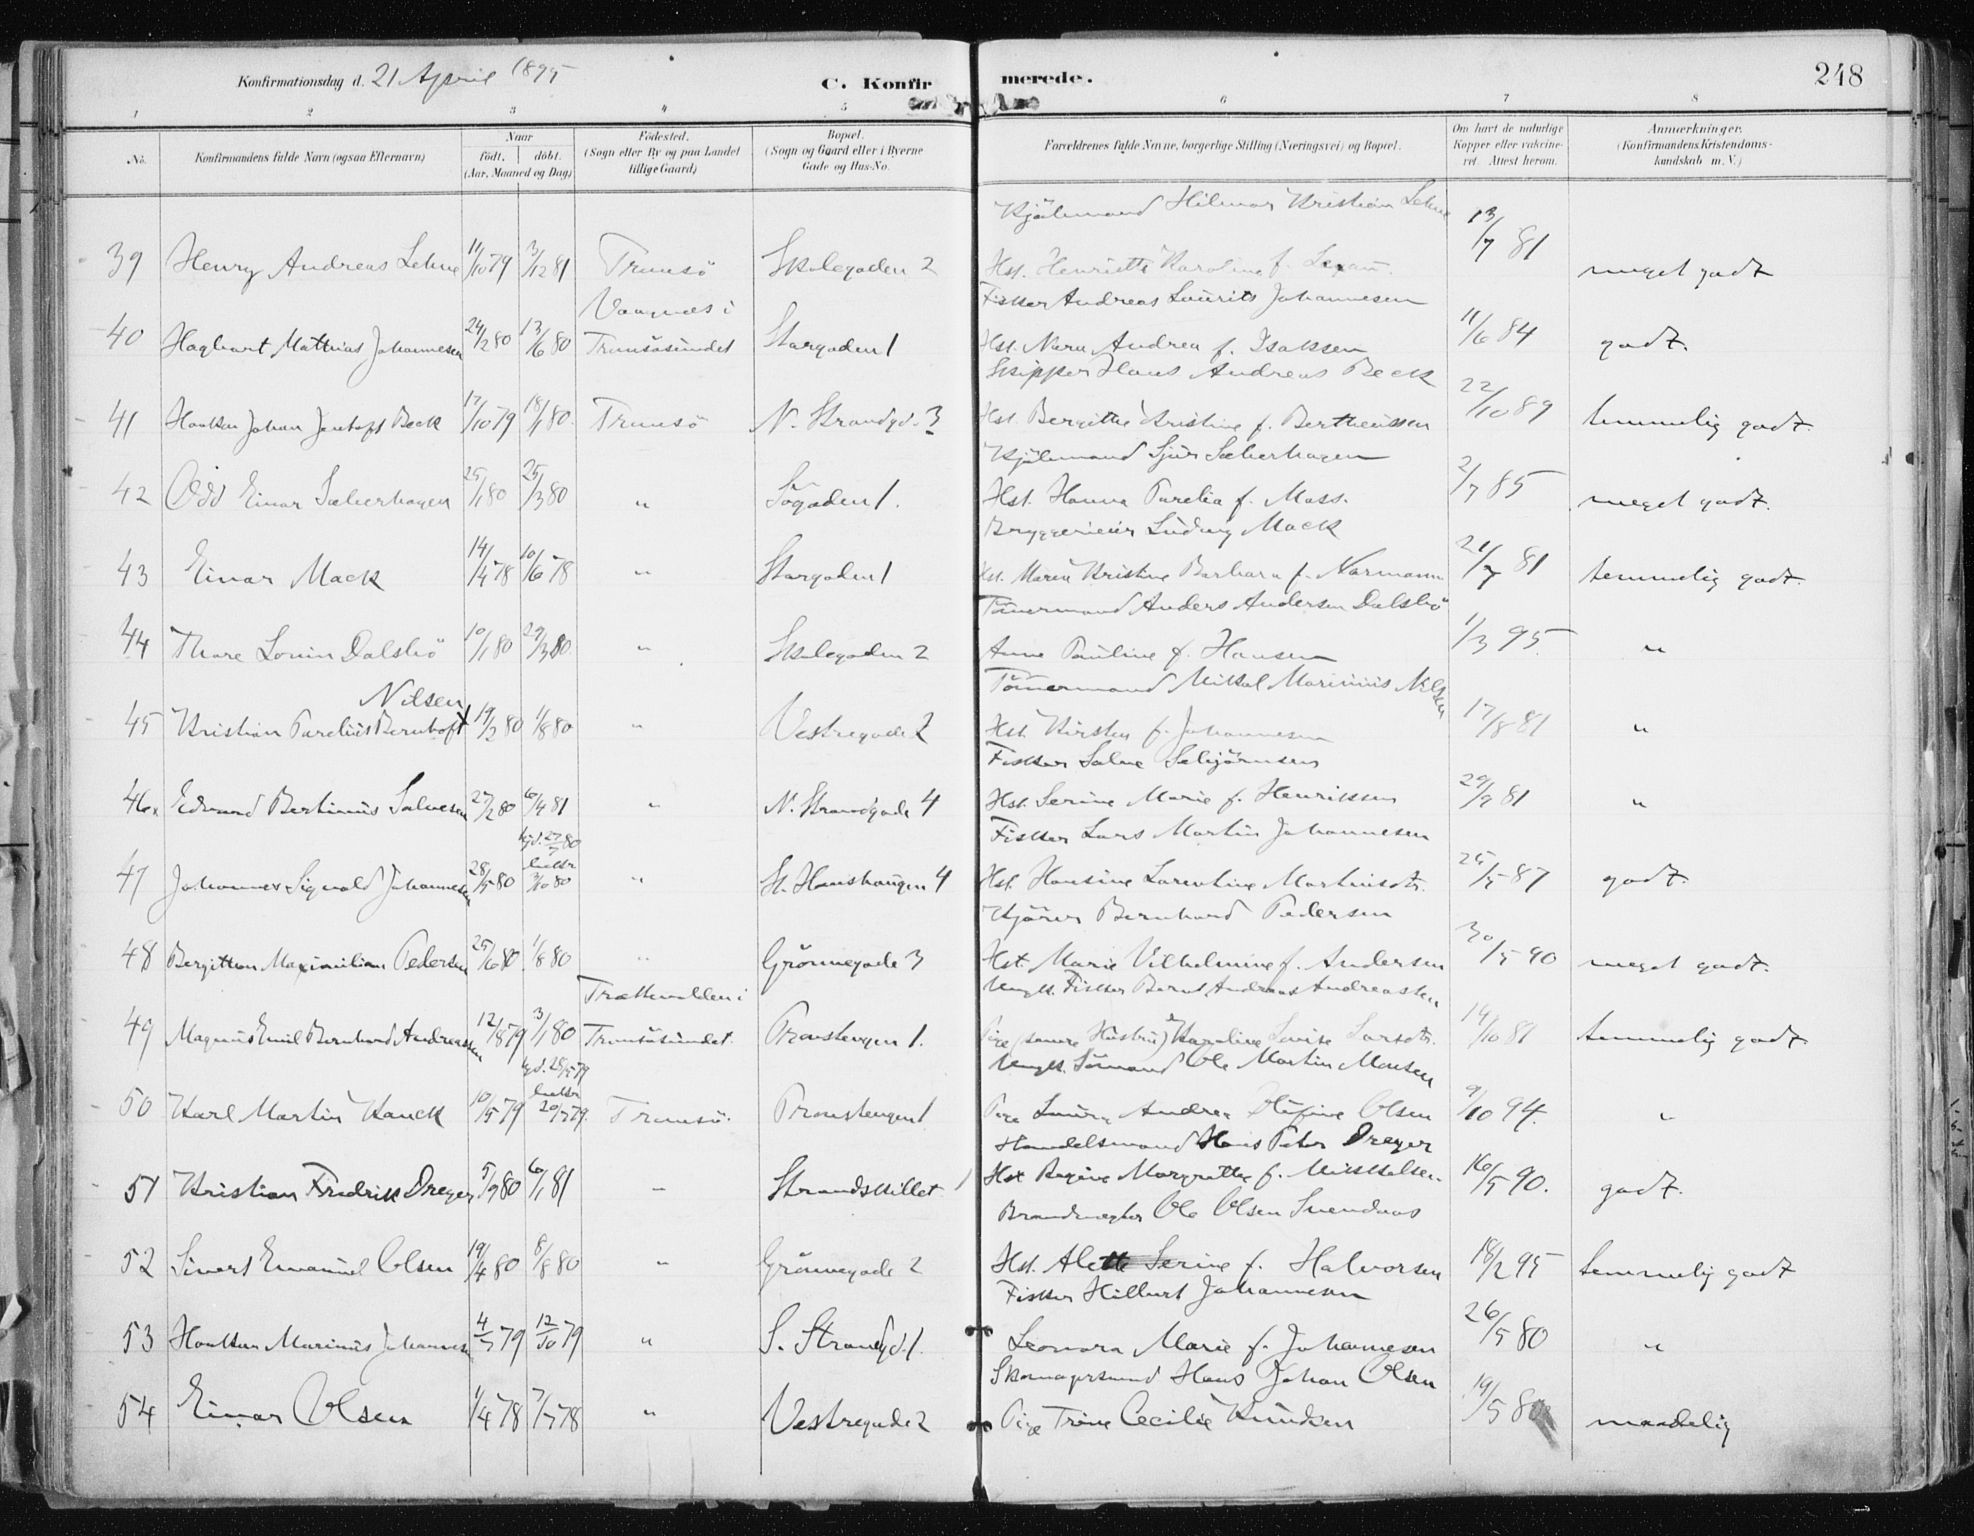 Konfirmationsdag d. 21 April 1895 C. Konfirmerede. 248
1 2 3 4 5 6 7 8
No. Konfirmandens fulde Navn (ogsaa Efternavn) Naar født. døbt. (Aar, Maaned og Dag) Fødested. (Sogn eller By og paa Landet tillige Gaard) Bopæl. (Sogn og Gaard eller i Byerne Gade og Hus-No. Forældrenes fulde Navne, borgerlige Stilling (Næringsvei) og Bopæl. Om havt de naturlige Kopper eller vakcineret. Attest herom. Anmærkninger. (Konfirmandens Kristendomskundskab m. V.)
Kjølmand Hilmar Kristian Lehne
39 Henry Andreas Lehne 11/10 79 3/12 81 Tromsö Skolegaden 2 Hst. Henriette Karoline f. 13/7 81 meget godt
Vaagnæs i Fisker Andreas Laurits Johannesen
40 Hagbart Mathias Johannesen 24/2 80 13/6 80 Tromsösundet Storgaden 1 Hst. Andrea f. Isaksen 11/6 84 godt.
Skipper Hans Andreas Beck
41 Haakon Johan Jentoft Beck 17/10 79 18/1 80. Tromsö N. Strandgd. 3 Hst. Bergitte Kristine f. Bertheussen 22/10 89 temmelig godt.
Kjölmand Sjur Sæherhagen
42 Odd Einar Sæherhagen 25/1 80 25/3 80 " Søgaden 1. Hst. Hanna Parelia f. Moss. 2/7 85 meget godt.
Bryggerieier Ludvig Mack
43 Einar Mack 14/4 78 10/6 78 " Storgaden 1 Hst. Maren Kristine Barbara f. Normann 21/7 81 temmelig godt.
Tömermand Anders Andersen Dalsbö
44 Thore Lorin Dalsbö 10/1 80 29/3 80. " Skolegaden 2 Anne Pauline f. Hansen 1/3 95. "
Nilsen Tömermand Mikal Marinius Nilsen
45 Kristian Parelius Bernhoft 19/2 80 1/8 80 " Vestregade 2 Hst. Kirsten f. Johannesen 17/8 81 "
Fisker Salve Sebjörnsen
46 Edvard Bertinius Salvesen 27/2 80 6/4 81 " N. Strandgade 4 Hst. Serine Marie f. Henriksen 29/7 81 "
hjd. 27/7 80 Fisker Lars Martin Johannesen
47 Johannes Signald Johannesen 28/5 80 3/10 80 " St. Hanshaugen 4 Hst. Hansine Larentine Martinsdtr. 25/5 87 godt.
Kjörer Bernhard Pedersen
48 Bergitton Maximilian Pedersen 25/6 80. 1/8 80 " Grönnegade 3 Hst. Marie Vilhelmine f. Andersen 30/5 90 meget godt.
i Ungk. Fisker Bernt Andreas Andreassen
49 Magnus Emil Bernhard Andreassen 12/8 79 3/1 80 Tromsösundet. Provstengen 1. Pige (senere Hustru) Karoline Lovise Larsdtr. 14/10 81 temmelig godt
hjd. 28/5 79 Ungk. Sömand Ole Martin Monsen
50 Karl Martin Hauck 10/5 79 20/7 79. Tromsö. Provstengen 1 Pige Laura Andrea Olufine Olsen 9/10 94. "
Handelsmand Hans Peter Dreyer
51 Kristian Fredrik Dreyer 5/9 80 6/1 81 " Strandskillet 1 Hst Regine Margrethe f. Mikkelsen. 16/5 90. godt.
Brandvægter Ole Olsen Svendaas
52 Sivert Emanuel Olsen 19/4 80 8/8 80 " Grönnegade 2 Hst. Alette Serine f. Halvorsen 18/2 95 temmelig godt
Fisker Hilbert Johannesen
53 Haakon Marinius Johannesen 4/7 79 12/10 79 " S. Strandgd. 1. Leonora Marie f. Johannesen 26/5 80 "
Skomagersvend Hans Johan Olsen
54 Einar Olsen 1/4 78 7/7 78 " Vestregade 2 Pige Trine Cecilie Knudsen 19/5 80 maadelig